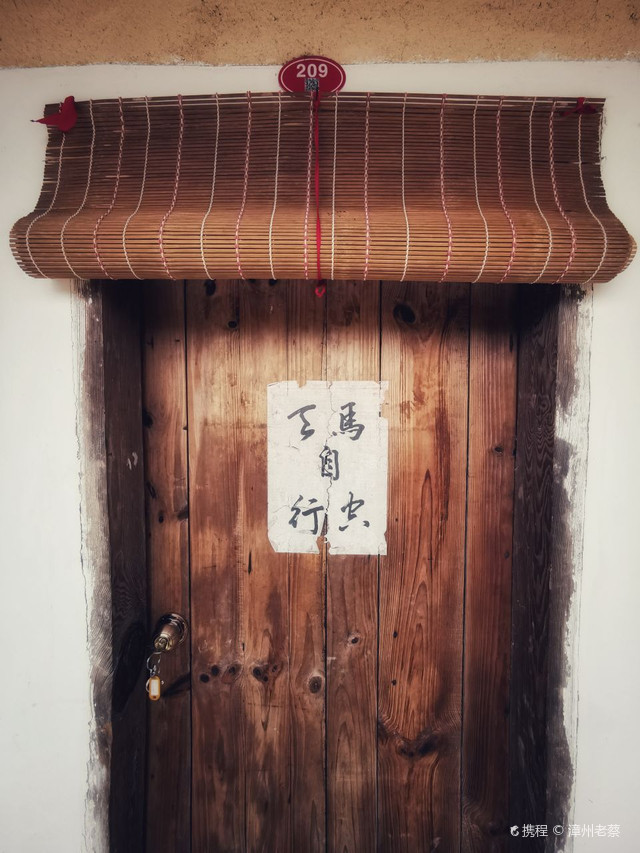 209
天馬
自
行空
携程 © 漳州老蔡